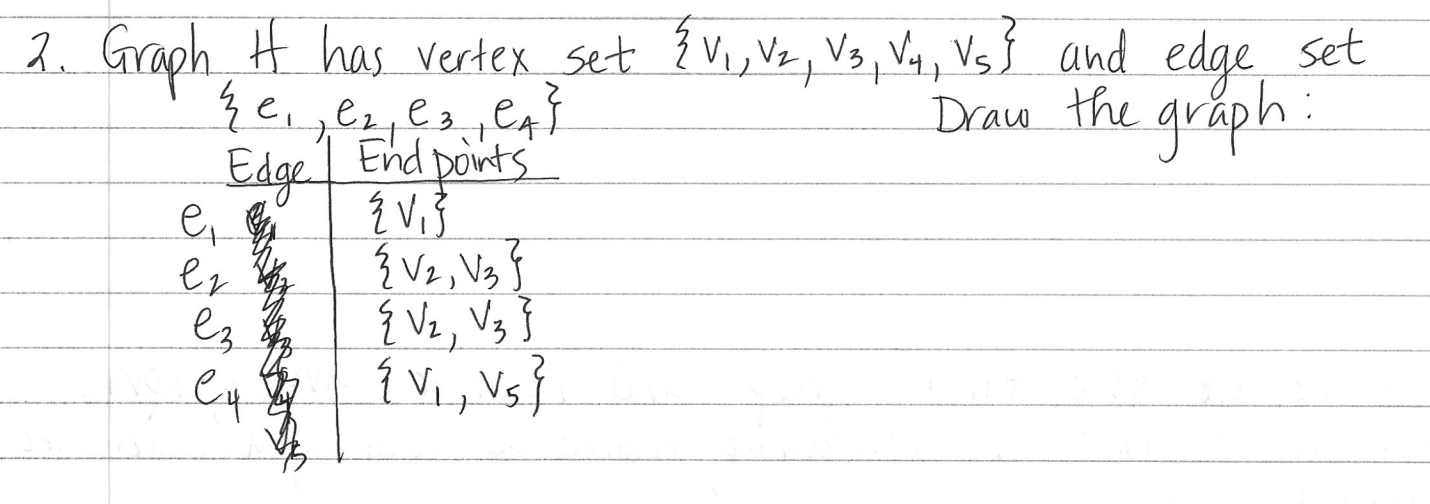 2. Graph H has vertex set {v₁, v₂, v₃, v₄, v₅} and edge set
{e₁, e₂, e₃, e₄} Draw the graph:
Edge | Endpoints
e₁ {v₁}
e₂ {v₂, v₃}
e₃ {v₂, v₃}
e₄ {v₁, v₅}